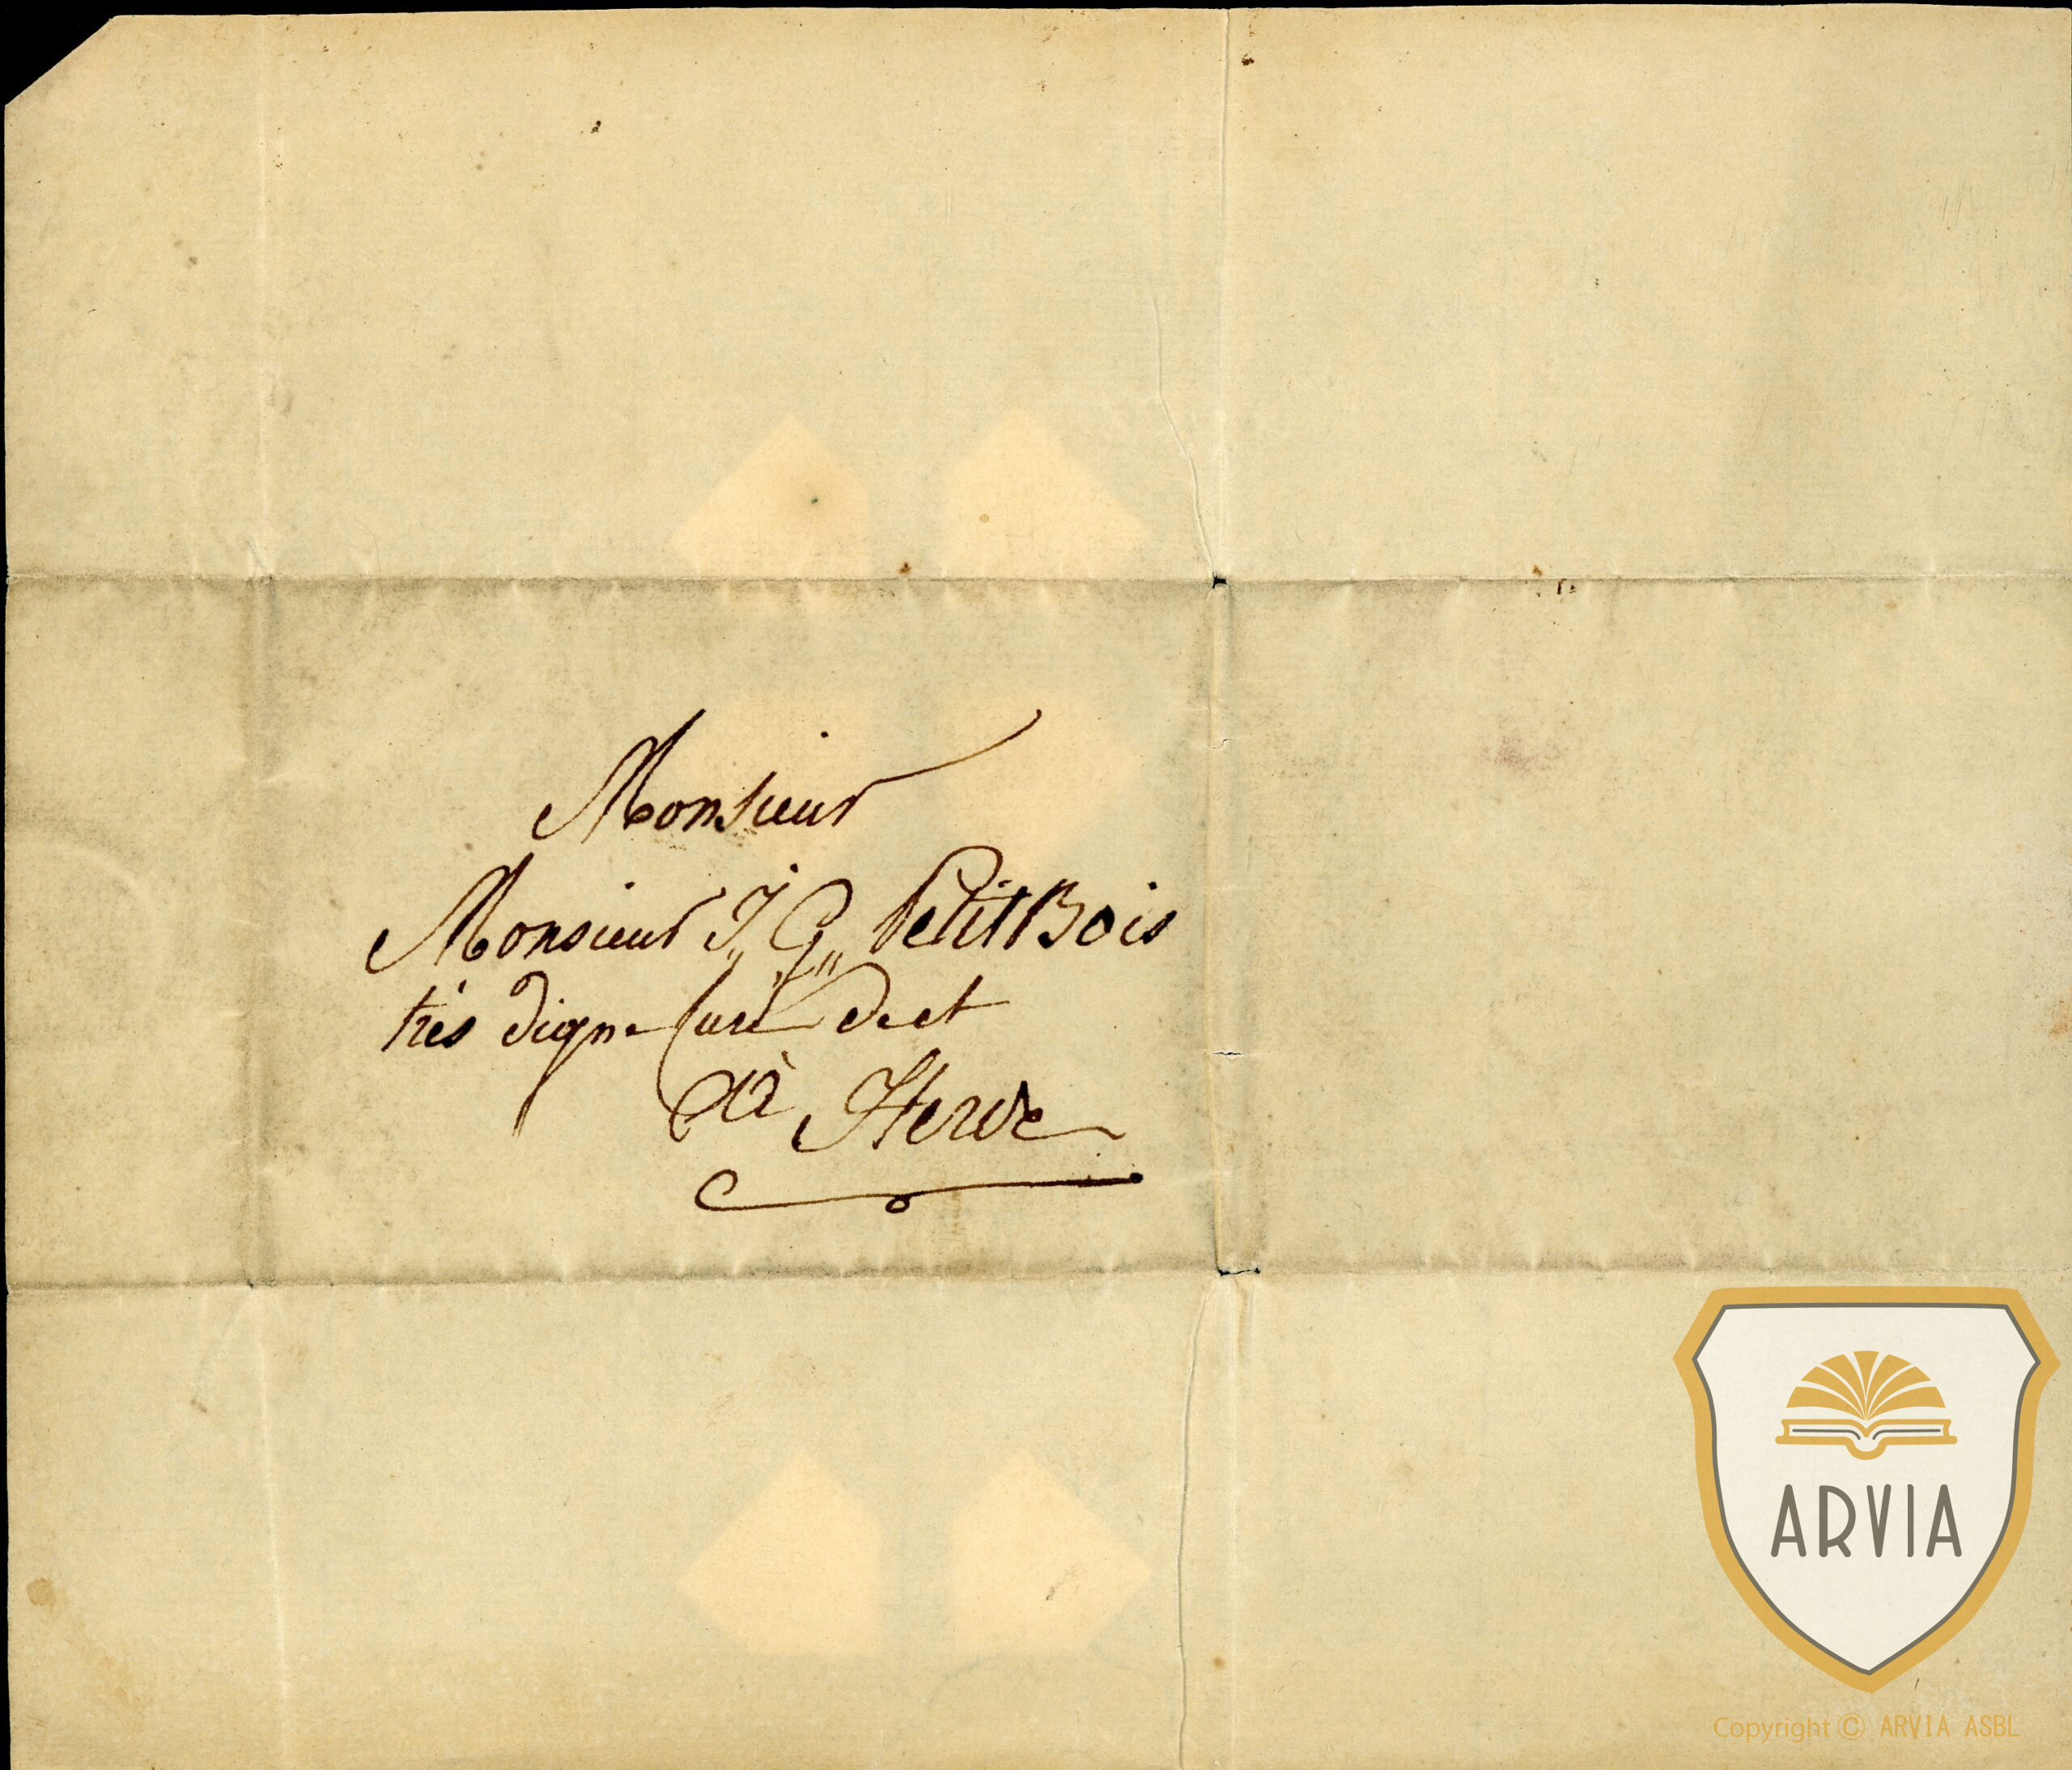 Monsieur
Monsieur J,, G,, PetitBois
très digne Curé de et
à Herve
ARVIA
Copyright © ARVIA ASBL